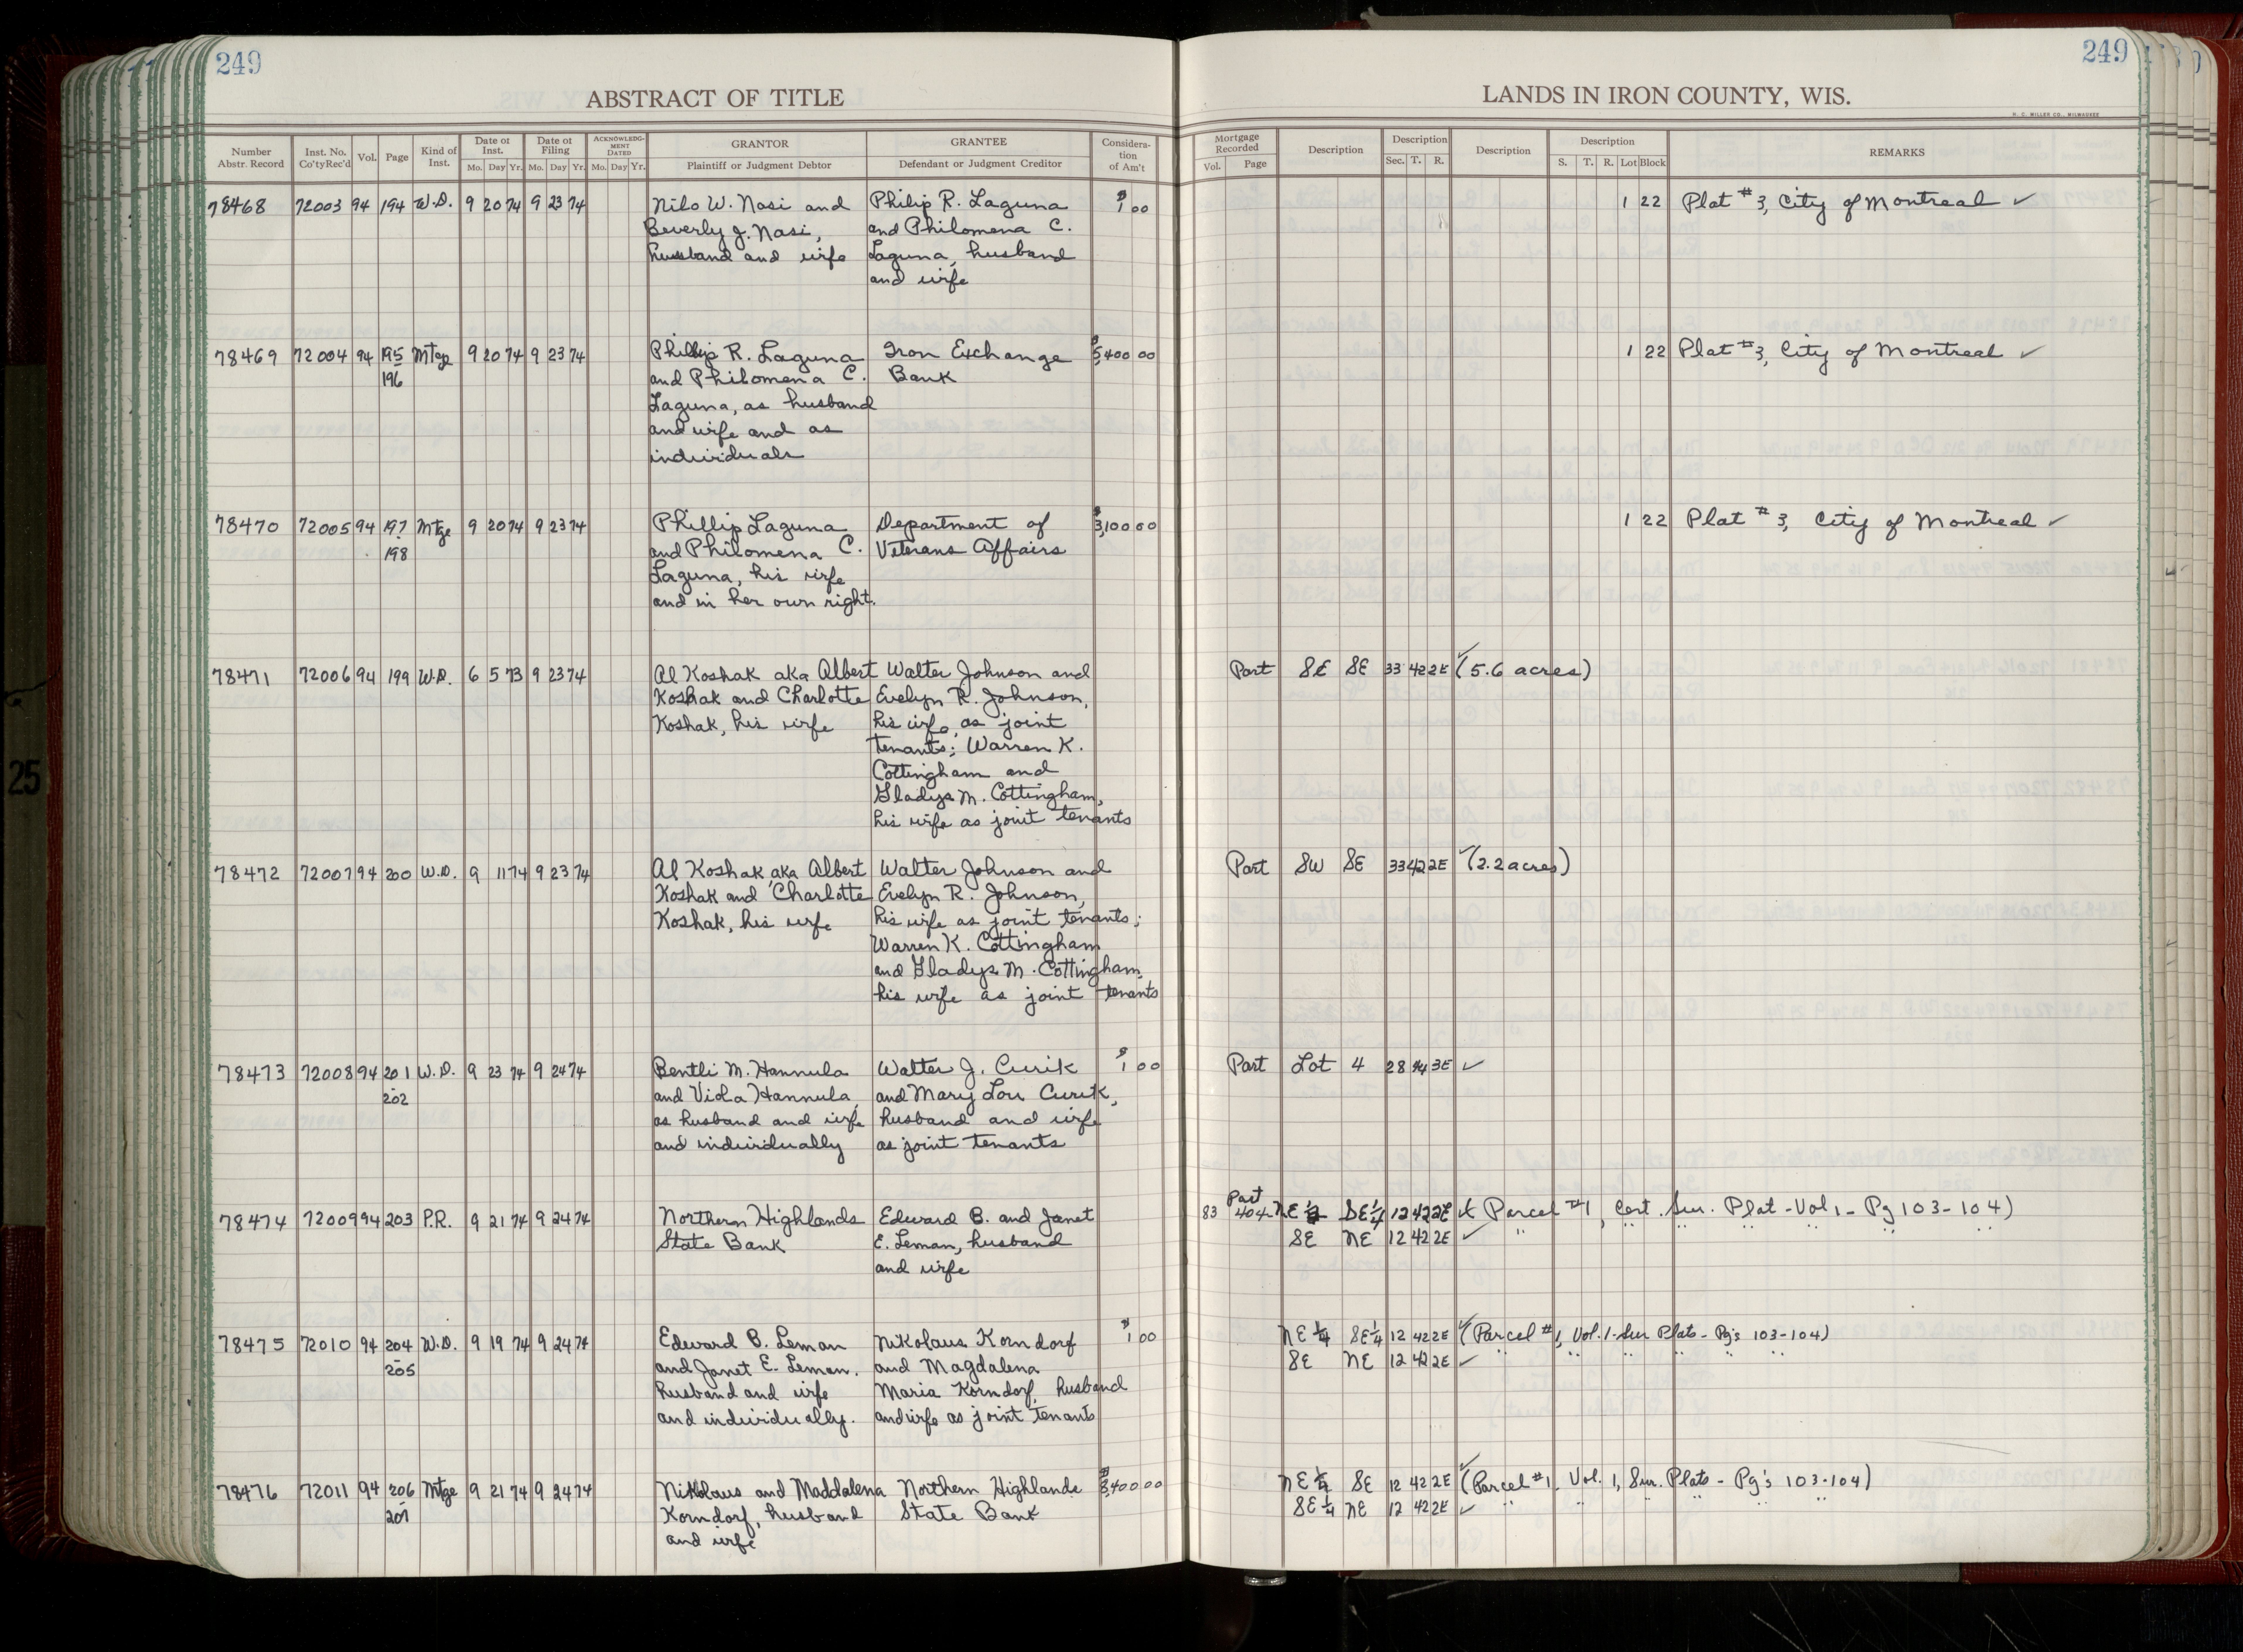 249
249
ABSTRACT OF TITLE
LANDS IN IRON COUNTY, WIS.
H. C. MILLER CO., MILWAUKEE
Number Abstr. Record
Inst. No. Co'ty Rec'd
Vol.
Page
Kind of Inst.
Date of Inst.
Mo. Day Yr.
Date of Filing
Mo. Day Yr.
ACKNOWLEDGMENT DATED
Mo. Day Yr.
GRANTOR
Plaintiff or Judgment Debtor
GRANTEE
Defendant or Judgment Creditor
Consideration of Am't
Mortgage Recorded
Vol. Page
Description
Description
Sec. T. R.
Description
Description
S. T. R. Lot Block
REMARKS
78468 72003 94 194 W.D. 9 20 74 9 23 74 Nilo W. Nasi and Philip R. Laguna $1 00 1 22 Plat #3, City of Montreal ✓
Beverly J. Nasi, and Philomena C.
husband and wife Laguna, husband
and wife
78469 72004 94 195 Mtge 9 20 74 9 23 74 Phillip R. Laguna Iron Exchange $5,400 00 1 22 Plat #3, City of Montreal ✓
-196 and Philomena C. Bank
Laguna, as husband
and wife and as
individuals
78470 72005 94 197 Mtge 9 20 74 9 23 74 Phillip Laguna Department of $3,100 00 1 22 Plat #3, City of Montreal ✓
-198 and Philomena C. Veterans Affairs
Laguna, his wife
and in her own right.
78471 72006 94 199 W.D. 6 5 73 9 23 74 Al Koshak aka Albert Walter Johnson and Part SE SE 33 42 2E ✓ (5.6 acres)
Koshak and Charlotte Evelyn R. Johnson,
Koshak, his wife his wife, as joint
tenants; Warren K.
Cottingham and
Gladys M. Cottingham,
his wife as joint tenants
78472 72007 94 200 W.D. 9 11 74 9 23 74 Al Koshak aka Albert Walter Johnson and Part SW SE 33 42 2E ✓ (2.2 acres)
Koshak and Charlotte Evelyn R. Johnson,
Koshak, his wife his wife as joint tenants;
Warren K. Cottingham
and Gladys M. Cottingham,
his wife as joint tenants
78473 72008 94 201 W.D. 9 23 74 9 24 74 Bentli M. Hannula Walter J. Curik $1 00 Part Lot 4 28 44 3E ✓
-202 and Viola Hannula, and Mary Lou Curik,
as husband and wife husband and wife
and individually as joint tenants
78474 72009 94 203 P.R. 9 21 74 9 24 74 Northern Highlands Edward B. and Janet 83 404 Part NE SE 1/4 12 42 2E ✓ Parcel #1, Cert. Sur. Plat - Vol 1 - Pg 103-104)
State Bank E. Leman, husband SE NE 12 42 2E ✓ " " " " " "
and wife
78475 72010 94 204 W.D. 9 19 74 9 24 74 Edward B. Leman Nikolaus Korndorf $1 00 NE 1/4 SE 1/4 12 42 2E ✓ (Parcel #1, Vol. 1 - Sur Plats - Pg's 103-104)
-205 and Janet E. Leman, and Magdalena SE NE 12 42 2E ✓ " " " " " "
husband and wife Maria Korndorf, husband
and individually. and wife as joint tenants
78476 72011 94 206 Mtge 9 21 74 9 24 74 Nikolaus and Maddalena Northern Highlands $8,400 00 NE 1/4 SE 12 42 2E ✓ (Parcel #1, Vol. 1, Sur. Plats - Pg's 103-104)
-207 Korndorf, husband State Bank SE 1/4 NE 12 42 2E ✓ " " " " " "
and wife
25